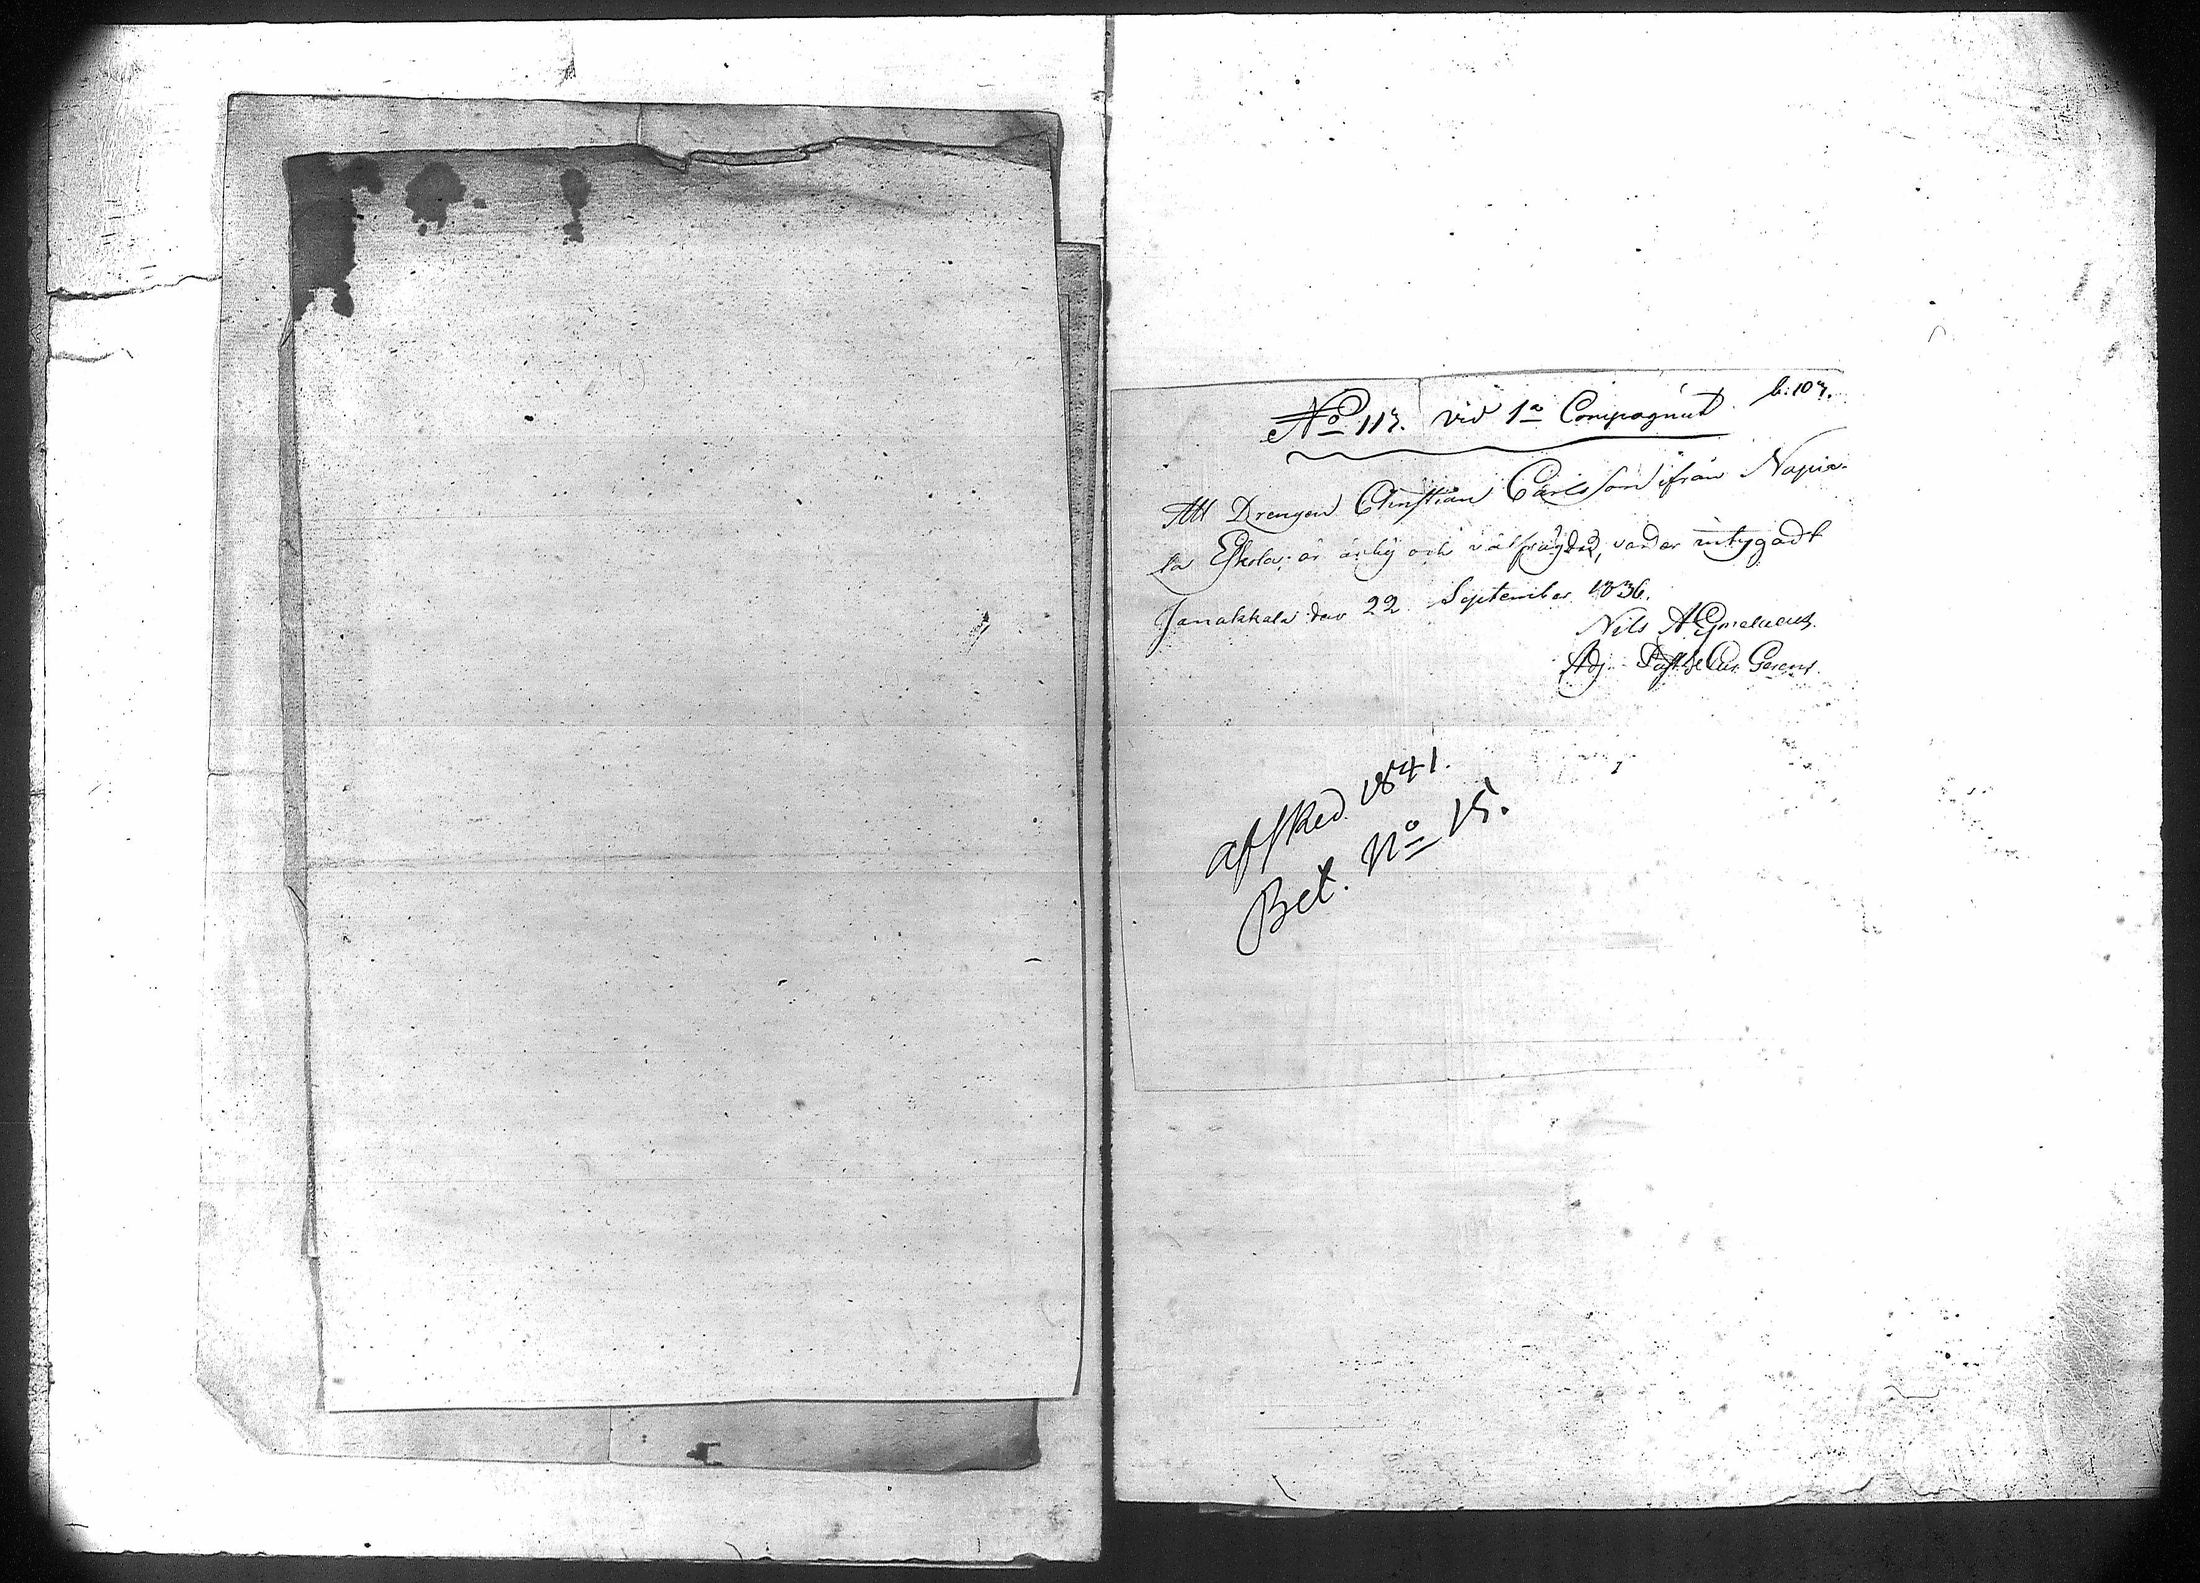 No 113. vid 1a Compagniet b. 103.
Att Drengen Christian Carlsson ifrån Napia-
la Eskola, är ärlig och välfräjdad, varder intygadt
Janakkala den 22 September 1836.
Nils
Adj. Past. et Cur. Gerens.
Afsked 1841.
Bet. No 15.